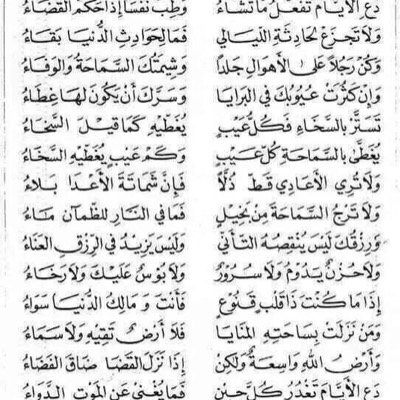 دَعِ الأَيَّامَ تَفْعَلُ مَا تَشَاءُ وَطِبْ نَفْساً إِذَا حَكَمَ القَضَاءُ
وَلاَ تَجْزَعْ لِحَادِثَةِ اللَّيَالِي فَمَا لِحَوَادِثِ الدُّنْيَا بَقَاءُ
وَكُنْ رَجُلاً عَلَى الأَهْوَالِ جَلْداً وَشِيمَتُكَ السَّمَاحَةُ وَالوَفَاءُ
وَإِنْ كَثُرَتْ عُيُوبُكَ فِي البَرَايَا وَسَرَّكَ أَنْ يَكُونَ لَهَا غِطَاءُ
تَسَتَّرْ بِالسَّخَاءِ فَكُلُّ عَيْبٍ يُغَطِّيهِ كَمَا قِيلَ السَّخَاءُ
يُغَطَّى بِالسَّمَاحَةِ كُلُّ عَيْبٍ وَكَمْ عَيْبٍ يُغَطِّيهِ السَّخَاءُ
وَلاَ تُرِي الأَعَادِي قَطُّ ذُلاًّ فَإِنَّ شَمَاتَةَ الأَعْدَا بَلاَءُ
وَلاَ تَرْجُ السَّمَاحَةَ مِنْ بَخِيلٍ فَمَا فِي النَّارِ لِلظَّمآنِ مَاءُ
وَرِزْقُكَ لَيْسَ يُنْقِصُهُ التَّأَنِّي وَلَيْسَ يَزِيدُ فِي الرِّزْقِ العَنَاءُ
وَلاَ حُزْنٌ يَدُومُ وَلاَ سُرُورٌ وَلاَ بُؤْسٌ عَلَيْكَ وَلاَ رَخَاءُ
إِذَا مَا كُنْتَ ذَا قَلْبٍ قَنُوعٍ فَأَنْتَ وَمَالِكُ الدُّنْيَا سَوَاءُ
وَمَنْ نَزَلَتْ بِسَاحَتِهِ المَنَايَا فَلاَ أَرْضٌ تَقِيهِ وَلاَ سَمَاءُ
وَأَرْضُ اللهِ وَاسِعَةٌ وَلَكِنْ إِذَا نَزَلَ القَضَا ضَاقَ الفَضَاءُ
دَعِ الأَيَّامَ تَغْدُرُ كُلَّ حِينٍ فَمَا يُغْنِي عَنِ المَوْتِ الدَّوَاءُ